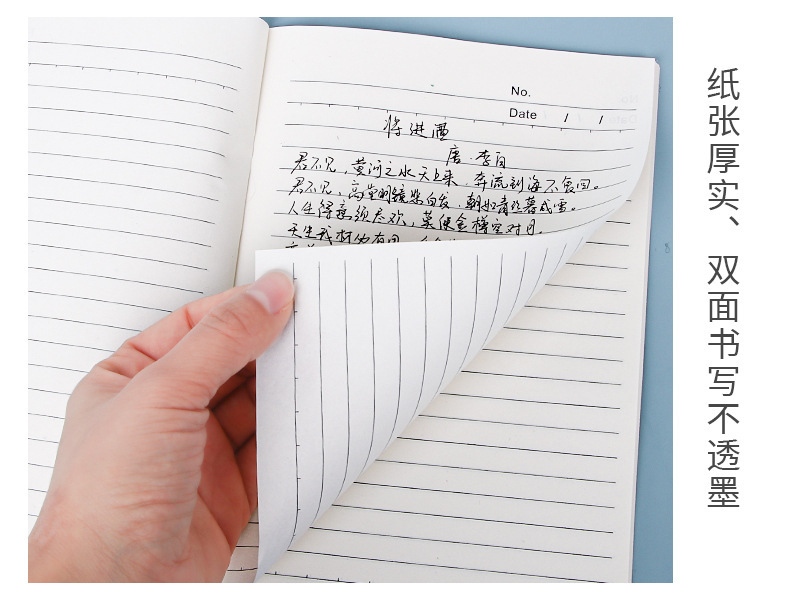 No.
Date / /
将进酒
唐·李白
君不见，黄河之水天上来，奔流到海不复回。
君不见，高堂明镜悲白发，朝如青丝暮成雪。
人生得意须尽欢，莫使金樽空对月。
天生我材必有用，
纸张厚实、双面书写不透墨